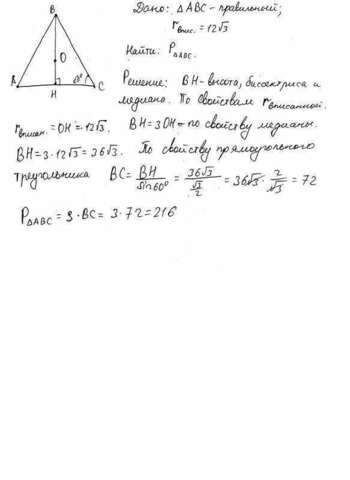 Дано: △ABC - правильный;
r впис. = 12√3
Найти: P△ABC.
Решение: BH - высота, биссектриса и
медиана. По свойствам r вписанной.
r вписан. = OH = 12√3. BH = 3OH - по свойству медианы.
BH = 3·12√3 = 36√3. По свойству прямоугольного
треугольника BC = BH/sin60° = 36√3/(√3/2) = 36√3 · 2/√3 = 72
P△ABC = 3 · BC = 3·72 = 216
B
O
A
60°
H
C